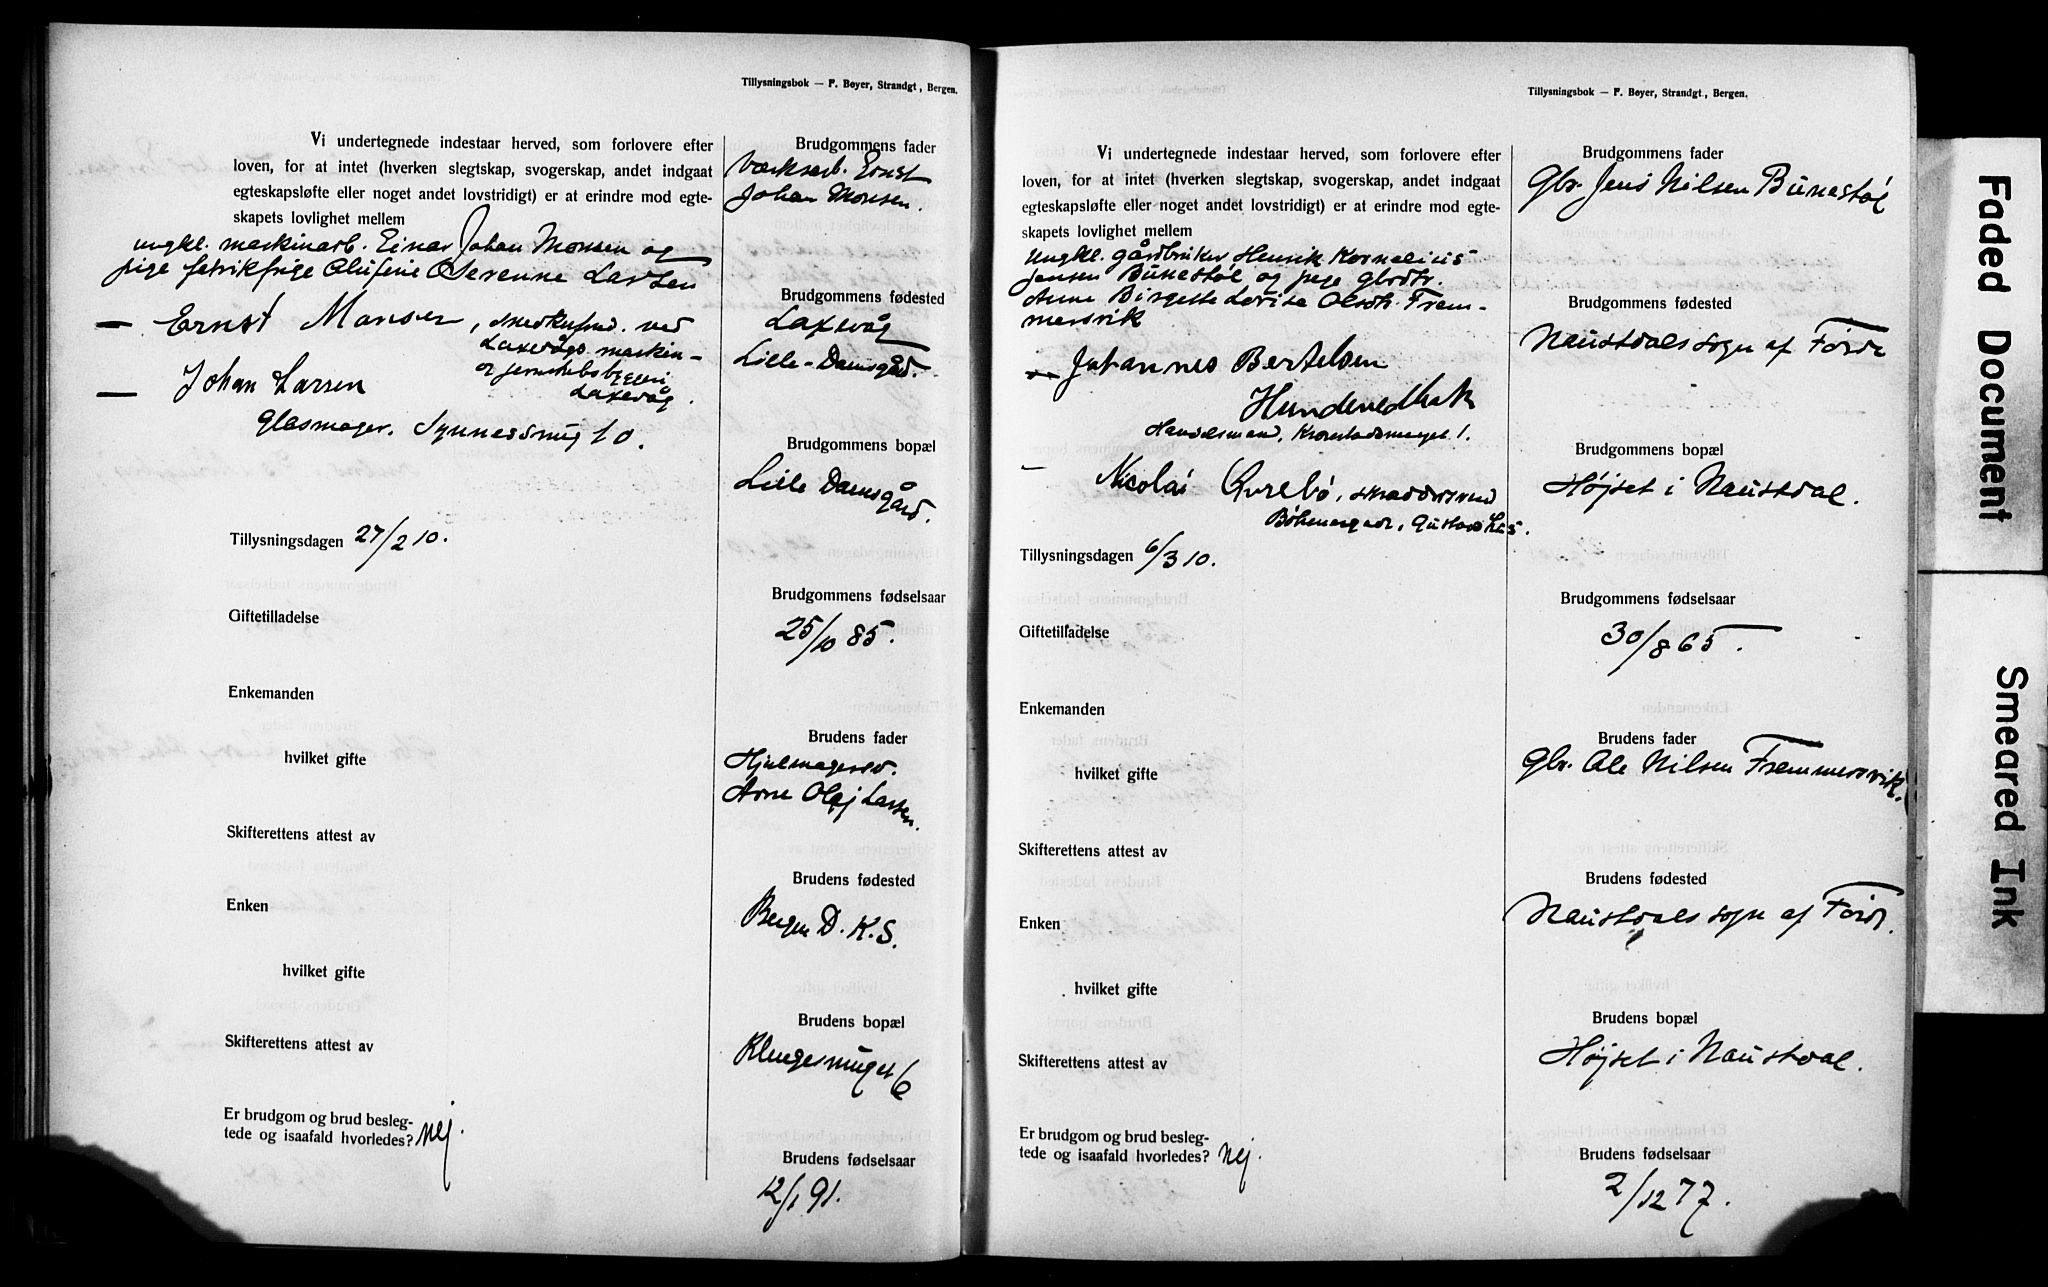 Tillysningsbok — F. Bøyer, Strandgt., Bergen.
Vi undertegnede indestaar herved, som forlovere efter
loven, for at intet (hverken slegtskap, svogerskap, andet indgaat
egteskapsløfte eller noget andet lovstridigt) er at erindre mod egte-
skapets lovlighet mellem
ungkl. maskinarb. Einar Johan Monsen og
pige fabrikpige Olufine Severine Larsen
— Ernst Monsen, ved
Laxevågs maskin-
og jernskibsbyggeri
Laxevåg.
— Johan Larsen
Glasmager,
Tillysningsdagen 27/2 10.
Giftetilladelse
Enkemanden
hvilket gifte
Skifterettens attest av
Enken
hvilket gifte
Skifterettens attest av
Er brudgom og brud besleg-
tede og isaafald hvorledes? Nej.
Brudgommens fader
Værksarb. Ernst
Johan Monsen.
Brudgommens fødested
Laxevåg
Lille-Damsgård.
Brudgommens bopæl
Lille Damsgård.
Brudgommens fødselsaar
25/10 85.
Brudens fader
Hjulmagersv.
Arne Olaj Larsen.
Brudens fødested
Bergen D. K. S.
Brudens bopæl
6
Brudens fødselsaar
12/1 91.
Tillysningsbok — F. Bøyer, Strandgt., Bergen.
Vi undertegnede indestaar herved, som forlovere efter
loven, for at intet (hverken slegtskap, svogerskap, andet indgaat
egteskapsløfte eller noget andet lovstridigt) er at erindre mod egte-
skapets lovlighet mellem
Ungkl. gårdbruker Henrik Kornelius
Jensen Bunestøl og pige gbrdtr.
Anne Birgitte Lovise Olsdtr. Frem-
mersvik
— Johannes Bertelsen
Hundvedbak
Handelsmand, 1.
— Nicolai skræddersvend
Tillysningsdagen 6/3 10.
Giftetilladelse
Enkemanden
hvilket gifte
Skifterettens attest av
Enken
hvilket gifte
Skifterettens attest av
Er brudgom og brud besleg-
tede og isaafald hvorledes? Nej.
Brudgommens fader
Gbr. Jens Nilsen Bunestøl
Brudgommens fødested
Naustdals sogn af Førde
Brudgommens bopæl
Højset i Naustdal.
Brudgommens fødselsaar
30/8 65.
Brudens fader
Gbr. Ole Nilsen Fremmersvik.
Brudens fødested
Naustdals sogn af Førde.
Brudens bopæl
Højset i Naustdal.
Brudens fødselsaar
2/12 77.
Faded Document
Smeared Ink